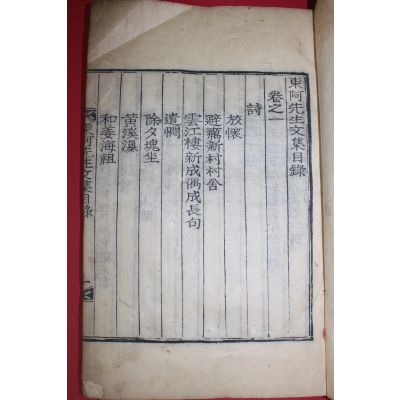 東阿先生文集目錄
卷之一
詩
放懷
避癘新村村舍
雲江樓新成偶成長句
遺惆
除夕塊坐
黃溪瀑
和姜海祖
東阿先生文集目錄
一